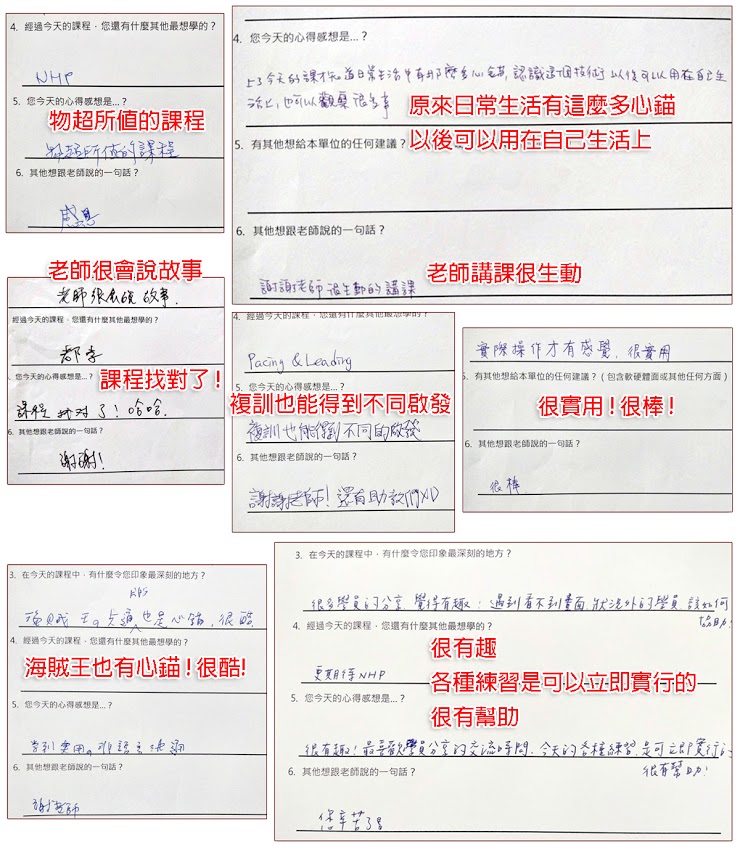 4. 經過今天的課程，您還有什麼其他最想學的？
NHP
5. 您今天的心得感想是...？
物超所值的課程
物超所值的課程
6. 其他想跟老師說的一句話？
感恩
4. 您今天的心得感想是...？
上了今天的課才知道日常生活中有那麼多心錨,認識這個技術了以後可以用在自己生
活上,也可以觀察很多事
原來日常生活有這麼多心錨
以後可以用在自己生活上
5. 有其他想給本單位的任何建議？
6. 其他想跟老師說的一句話？
老師講課很生動
謝謝老師很生動的講課
老師很會說故事
老師很會說故事.
經過今天的課程，您還有什麼其他最想學的？
都學
您今天的心得感想是...？
課程找對了!
課程找對了！哈哈.
6. 其他想跟老師說的一句話？
謝謝!
4. 經過今天的課程，您還有什麼其他最想學的？
Pacing & Leading
5. 您今天的心得感想是...？
複訓也能得到不同啟發
複訓也能得到不同的啟發
6. 其他想跟老師說的一句話？
謝謝老師! 還有助教們XD
實際操作才有感覺,很實用
5. 有其他想給本單位的任何建議？（包含軟硬體面或其他任何方面）
很實用!很棒!
6. 其他想跟老師說的一句話？
很棒
3. 在今天的課程中，有什麼令您印象最深刻的地方？
海賊王 也是心錨,很酷
4. 經過今天的課程，您還有什麼其他最想學的？
海賊王也有心錨!很酷!
5. 您今天的心得感想是...？
6. 其他想跟老師說的一句話？
謝謝老師
3. 在今天的課程中，有什麼令您印象最深刻的地方？
很多學員的分享,覺得有趣!遇到看不到畫面,狀況外的學員,該如何
協助!
4. 經過今天的課程，您還有什麼其他最想學的？
很有趣
更期待NHP
各種練習是可以立即實行的
5. 您今天的心得感想是...？
很有幫助
很有趣!最喜歡學員分享的交流時間.今天的各種練習,是可立即實行的
很有幫助!
6. 其他想跟老師說的一句話？
您辛苦了